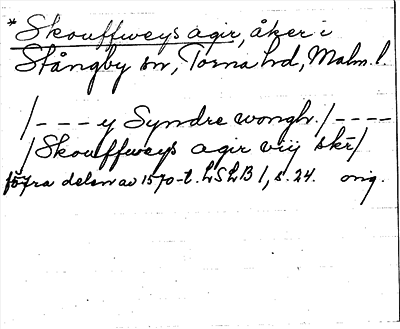 *Skouffweys agir, åker i
Stångby sn, Torna hd, Malm. l.
/--- y Syndre wongh. /----
/Skouffweys agir vij skr/
förra delen av 1570-t. LSLB 1, s. 24. orig.